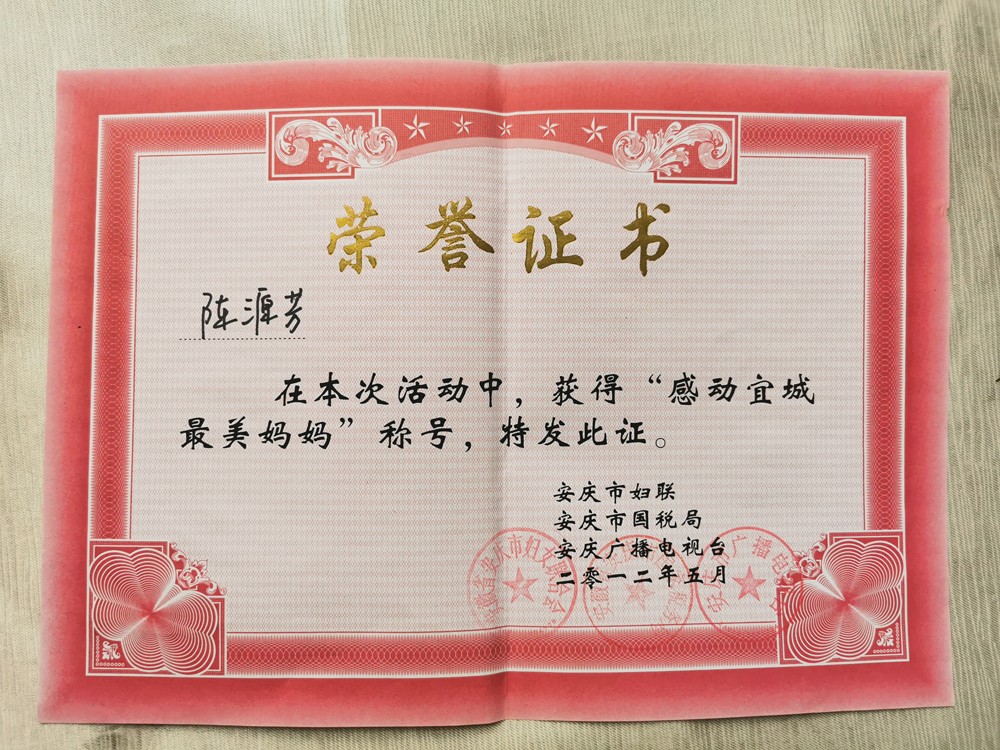 荣誉证书
陈源芳
在本次活动中，获得“感动宜城
最美妈妈”称号，特发此证。
安庆市妇联
安庆市国税局
安庆广播电视台
二零一二年五月